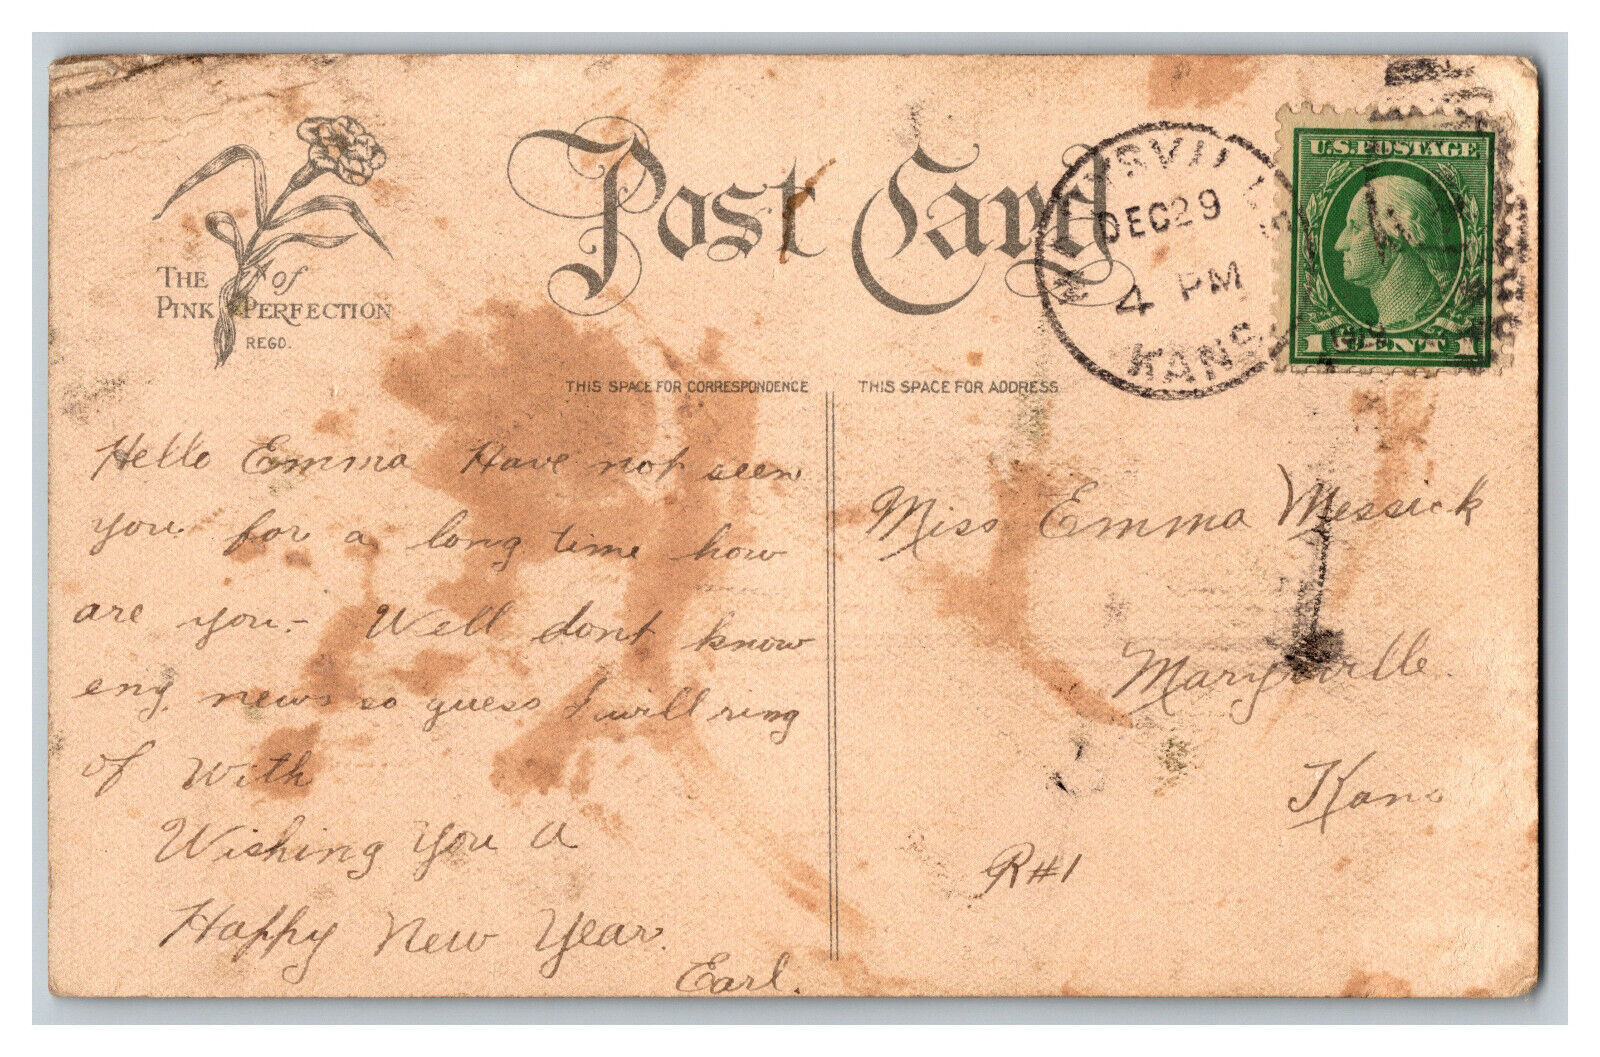 Post Card
THE of
PINK PERFECTION
REGD.
DEC 29
4 PM
KANS
U.S. POSTAGE
1 CENT 1
THIS SPACE FOR CORRESPONDENCE
THIS SPACE FOR ADDRESS
Hello Emma Have not seen
you for a long time how
are you - Well dont know
eny news so guess I will ring
of With
Wishing You A
Happy New Year.
Earl.
Miss Emma Messick
Marysville.
Kans
R#1